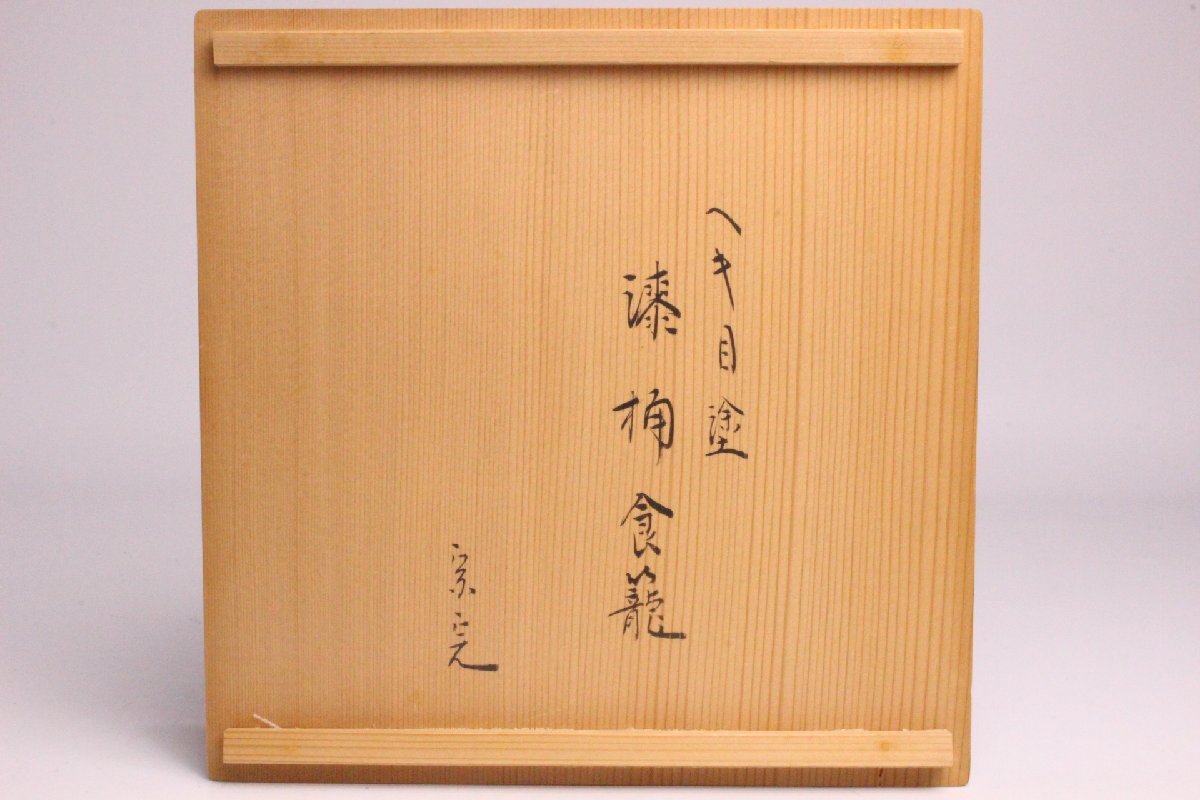 へキ目塗
漆桶食籠
宗完